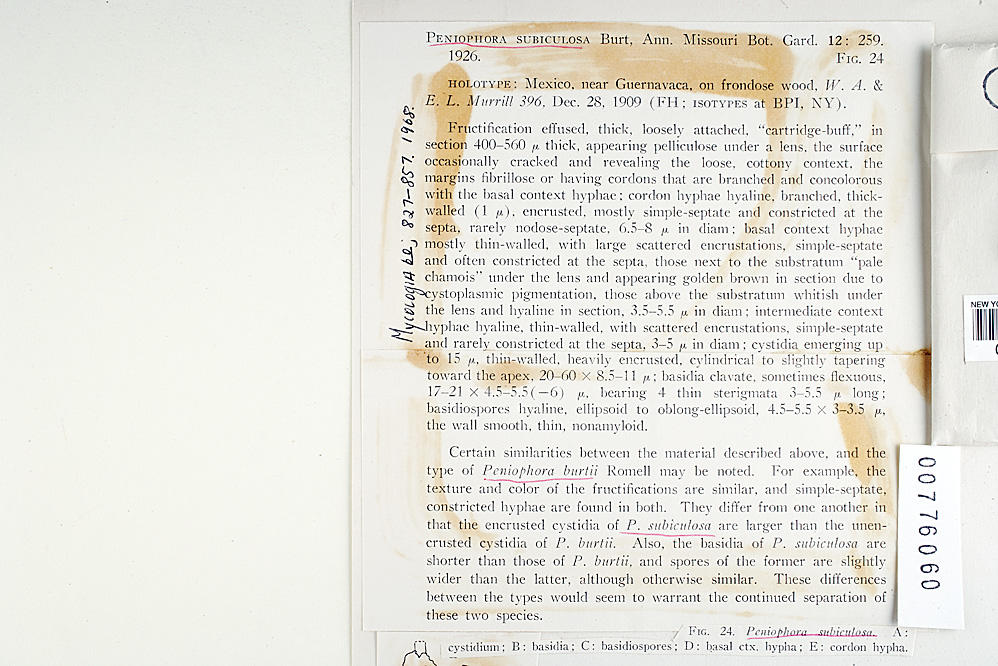 PENIOPHORA SUBICULOSA Burt, Ann. Missouri Bot. Gard. 12: 259.
1926. FIG. 24
HOLOTYPE: Mexico, near Guernavaca, on frondose wood, W. A. &
E. L. Murrill 396, Dec. 28, 1909 (FH; ISOTYPES at BPI, NY).
Fructification effused, thick, loosely attached, “cartridge-buff,” in
section 400–560 μ thick, appearing pelliculose under a lens, the surface
occasionally cracked and revealing the loose, cottony context, the
margins fibrillose or having cordons that are branched and concolorous
with the basal context hyphae; cordon hyphae hyaline, branched, thick-
walled (1 μ), encrusted, mostly simple-septate and constricted at the
septa, rarely nodose-septate, 6.5–8 μ in diam; basal context hyphae
mostly thin-walled, with large scattered encrustations, simple-septate
and often constricted at the septa, those next to the substratum “pale
chamois” under the lens and appearing golden brown in section due to
cystoplasmic pigmentation, those above the substratum whitish under
the lens and hyaline in section, 3.5–5.5 μ in diam; intermediate context
hyphae hyaline, thin-walled, with scattered encrustations, simple-septate
and rarely constricted at the septa, 3–5 μ in diam; cystidia emerging up
to 15 μ, thin-walled, heavily encrusted, cylindrical to slightly tapering
toward the apex, 20–60 × 8.5–11 μ; basidia clavate, sometimes flexuous,
17–21 × 4.5–5.5(–6) μ, bearing 4 thin sterigmata 3–5.5 μ long;
basidiospores hyaline, ellipsoid to oblong-ellipsoid, 4.5–5.5 × 3–3.5 μ,
the wall smooth, thin, nonamyloid.
Certain similarities between the material described above, and the
type of Peniophora burtii Romell may be noted. For example, the
texture and color of the fructifications are similar, and simple-septate,
constricted hyphae are found in both. They differ from one another in
that the encrusted cystidia of P. subiculosa are larger than the unen-
crusted cystidia of P. burtii. Also, the basidia of P. subiculosa are
shorter than those of P. burtii, and spores of the former are slightly
wider than the latter, although otherwise similar. These differences
between the types would seem to warrant the continued separation of
these two species.
FIG. 24. Peniophora subiculosa. A:
cystidium; B: basidia; C: basidiospores; D: basal ctx. hypha; E: cordon hypha.
827–857. 1968.
NEW YO
00776060